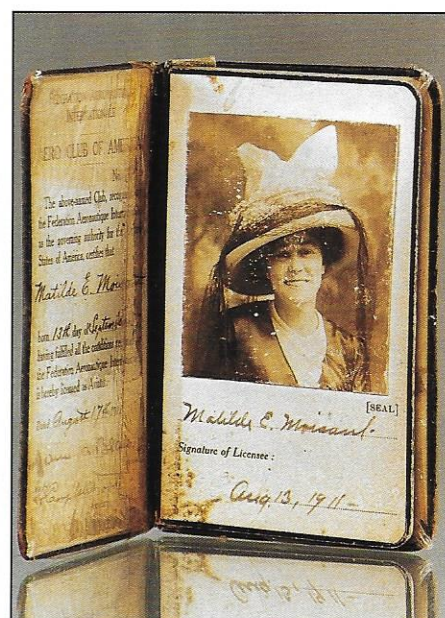 INTERNATIONALE
AERO CLUB OF AM
No.
The above-named Club, recog
the Federation Aeronautique Intern
as the governing authority for the
States of America, certifies that
Matilde E. Moi
born 13th day of Septemb
having fulfilled all the conditions
the Federation Aeronautique Inter
is hereby licensed as Aviator.
Dated August 17th
[SEAL]
Matilde E. Moisant.
Signature of Licensee :
Aug. 13, 1911